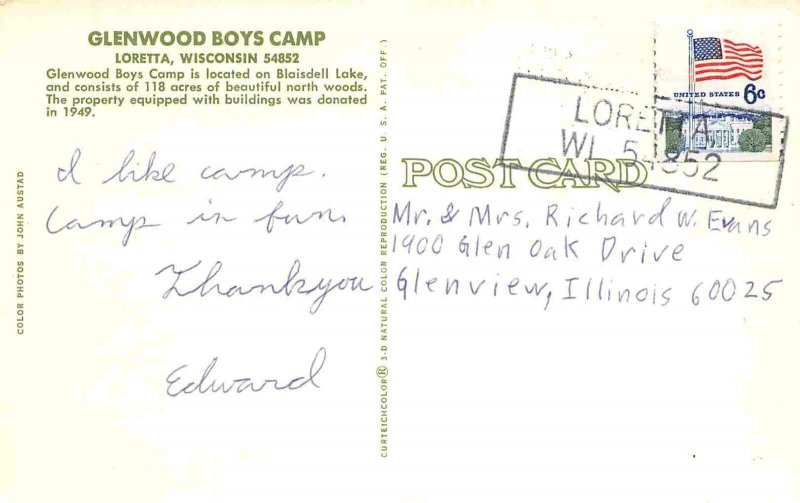 GLENWOOD BOYS CAMP
LORETTA, WISCONSIN 54852
Glenwood Boys Camp is located on Blaisdell Lake,
and consists of 118 acres of beautiful north woods.
The property equipped with buildings was donated
in 1949.
I like camp.
Camp in fun.
Thankyou
Edward
COLOR PHOTOS BY JOHN AUSTAD
CURTEICHCOLOR® 3-D NATURAL COLOR REPRODUCTION (REG. U. S. A. PAT. OFF.)
UNITED STATES 6c
LORETTA
WI 54852
POST CARD
Mr. & Mrs. Richard W. Evans
1900 Glen Oak Drive
Glenview, Illinois 60025